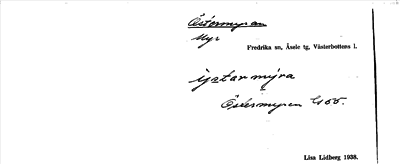 Östermyran
Myr
Fredrika sn, Åsele tg, Västerbottens l.
ystarmýra
Östermyren
Lisa Lidberg 1938.